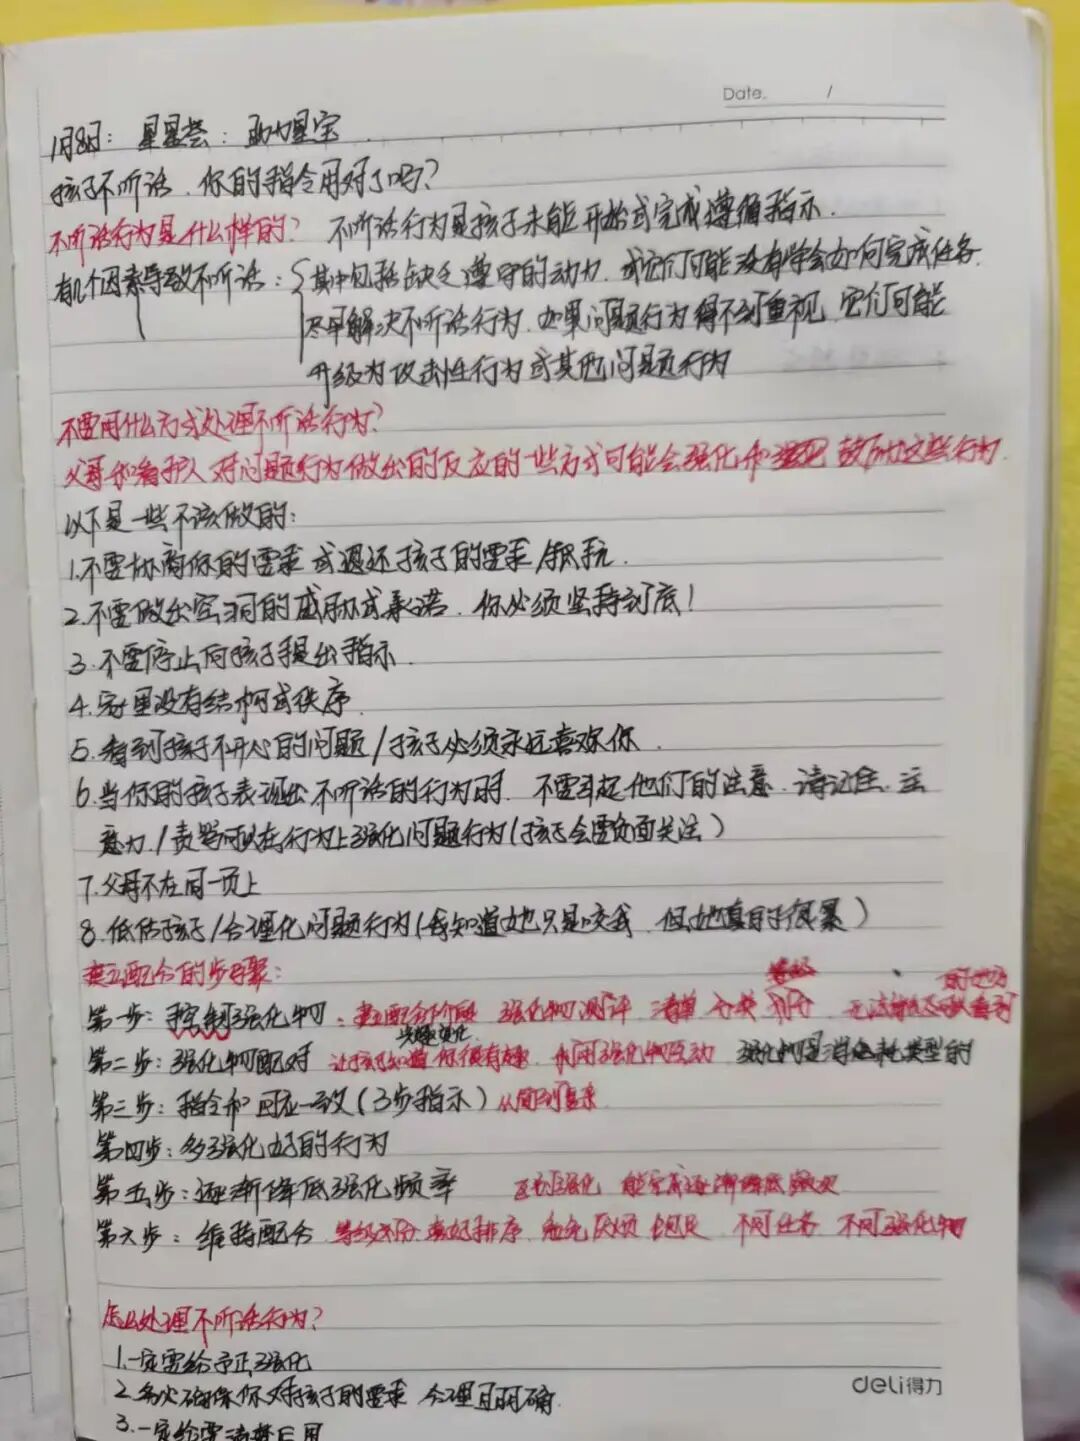 Date. /
1月8日：星星荟：助力星宝
孩子不听话，你的指令用对了吗？
不听话行为是什么样的？ 不听话行为是孩子未能开始或完成遵循指示．
有几个因素导致不听话：其中包括缺乏遵守的动力，或它们可能没有学会如何完成任务．
尽早解决不听话行为．如果问题行为得不到重视，它们可能
升级为攻击性行为或其他问题行为
不要用什么方式处理不听话行为？
父母和看护人对问题行为做出的反应的一些方式可能会强化和鼓励这些行为．
以下是一些不该做的：
1.不要协商你的要求或退还孩子的要求/
2.不要做出空洞的威胁或承诺．你必须坚持到底！
3.不要停止向孩子提出指示．
4.家里没有结构或秩序
5.看到孩子不开心的问题/孩子必须永远喜欢你．
6.当你的孩子表现出不听话的行为时，不要引起他们的注意．请记住，注
意力/责骂可以在行为上强化问题行为(孩子会要负面关注)
7.父母不在同一页上
8.低估孩子/合理化问题行为(我知道她只是咬我，但她真的很累)
建立配合的步骤：
第一步：控制强化物．建立配合阶段 强化物测评 清单 分类 划分
第二步：强化物配对 让孩子知道你很有趣．利用强化物互动 强化物是消耗类型的
第三步：指令和回应一致(3步指示)从简到复杂
第四步：多强化好的行为
第五步：逐渐降低强化频率 区别强化
第六步：维持配合．等级划分 喜好排序．避免厌烦 饱足 不同任务 不同强化物
怎么处理不听话行为？
1.一定要给予正强化
2.务必确保你对孩子的要求 合理且明确．
3.一定
deli得力